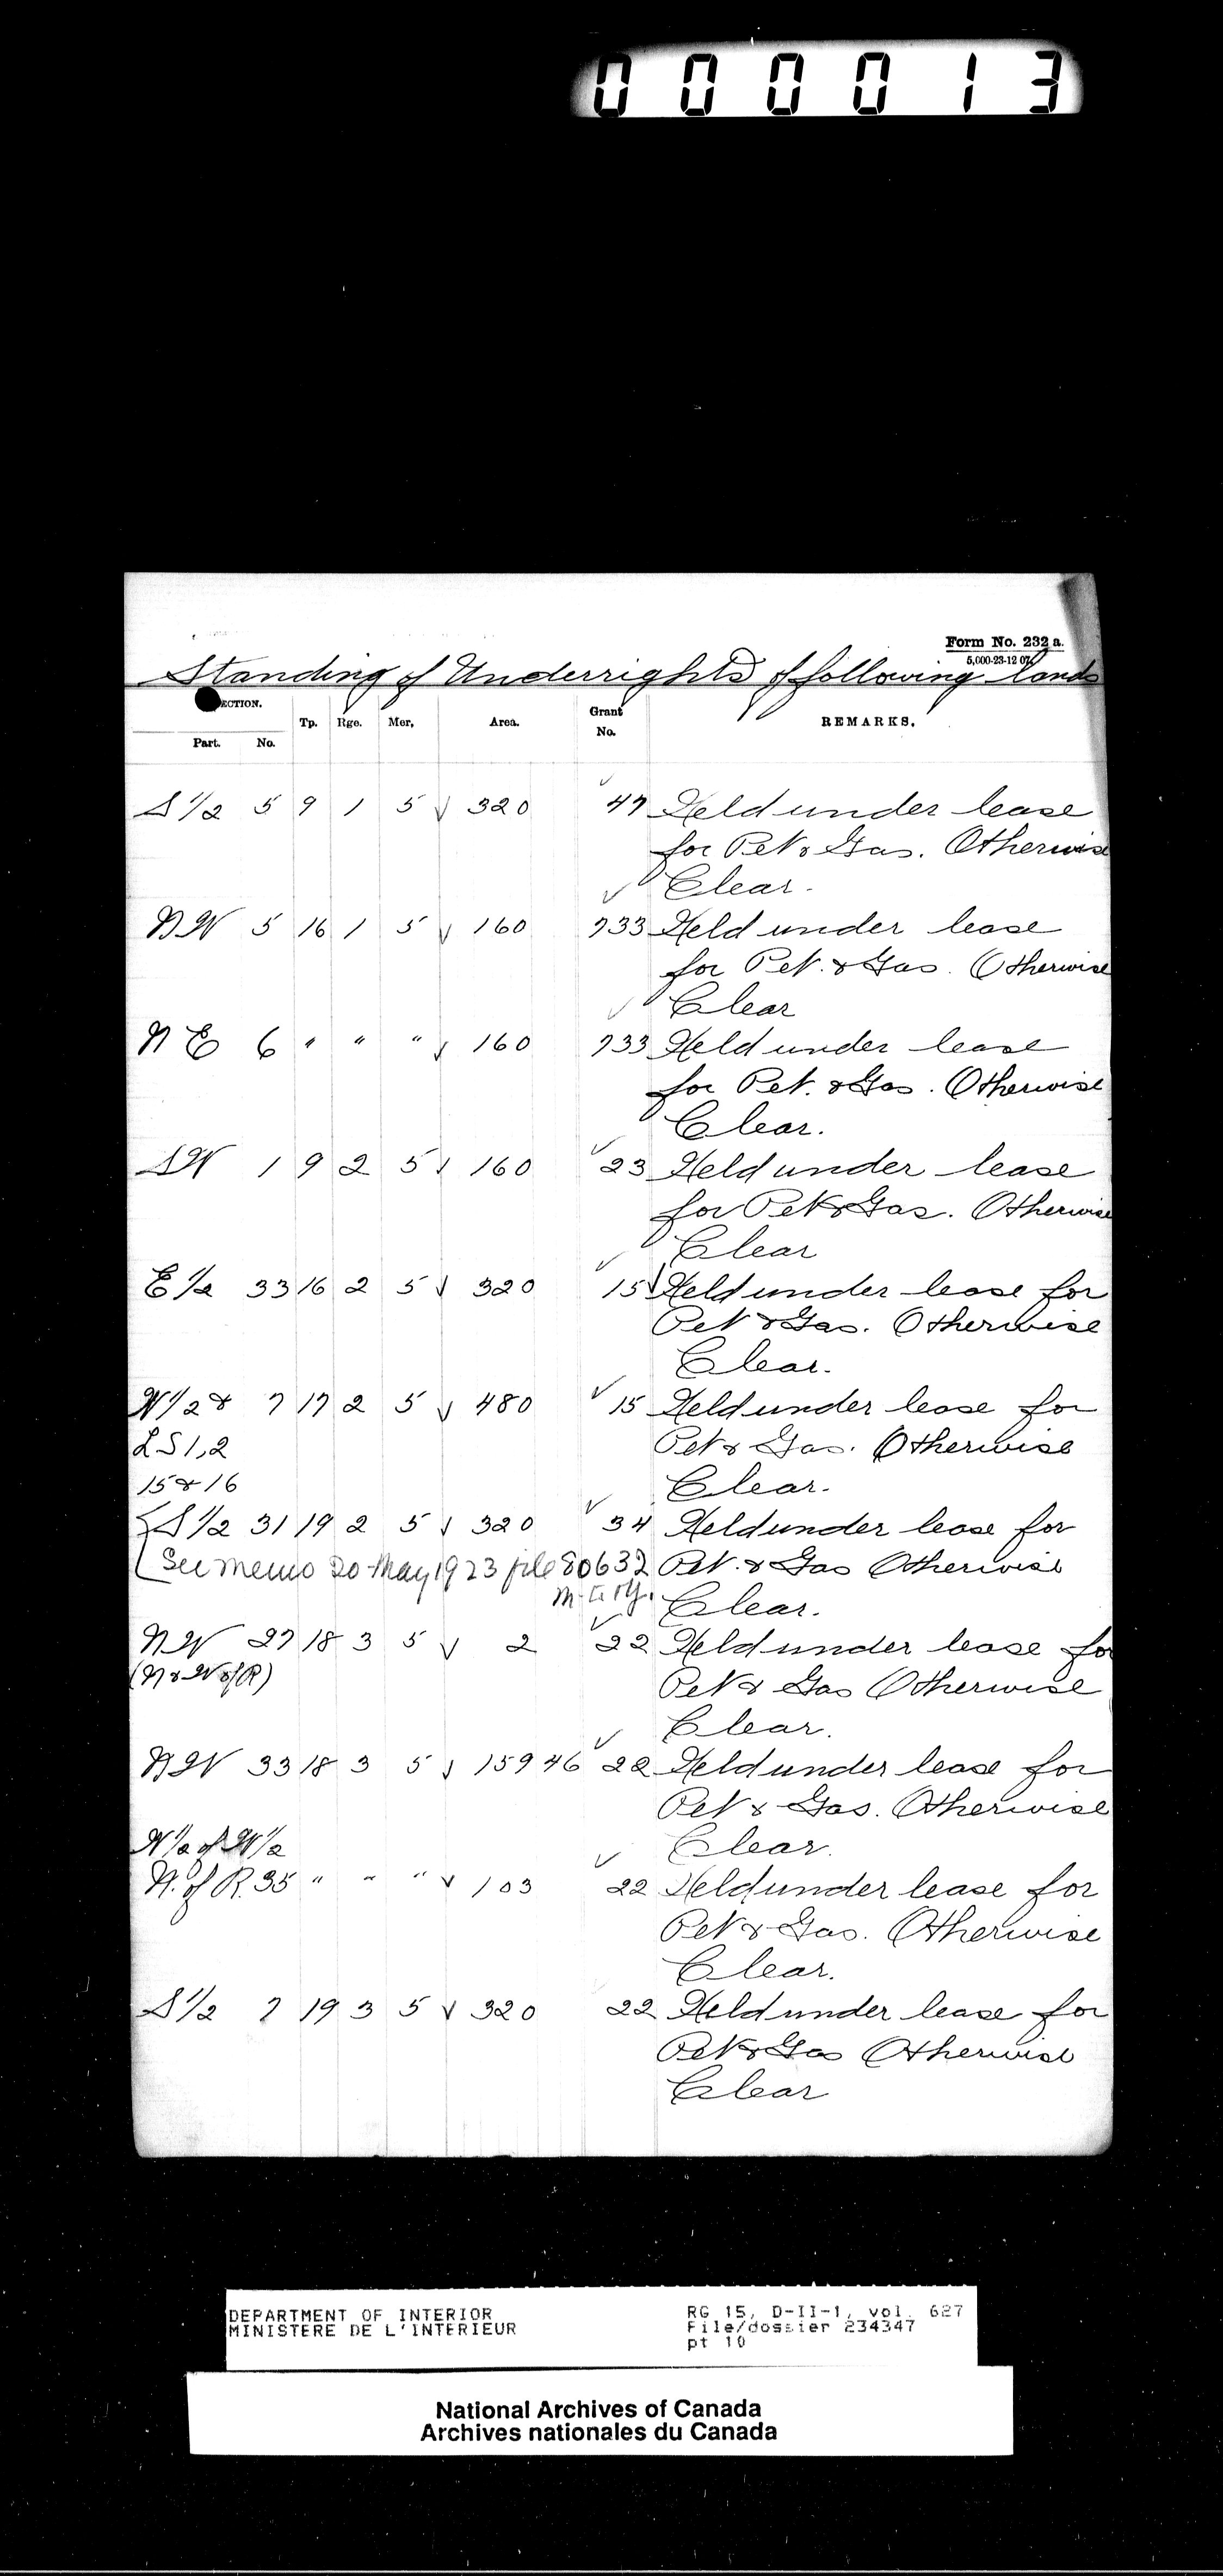 000013
Form No. 232 a.
5,000-23-12 07.
Standing of Underrights of following lands
SECTION.
Part. No. Tp. Rge. Mer. Area. Grant No. REMARKS.
S 1/2 5 9 1 5 √ 320 ✓ 47 Held under lease
for Pet & Gas. Otherwise
Clear.
NW 5 16 1 5 √ 160 ✓ 733 Held under lease
for Pet. & Gas. Otherwise
Clear
NE 6 " " " √ 160 ✓ 733 Held under lease
for Pet. & Gas. Otherwise
Clear.
SW 1 9 2 5 √ 160 ✓ 23 Held under lease
for Pet & Gas. Otherwise
Clear
E 1/2 33 16 2 5 √ 320 ✓ 15 Held under lease for
Pet & Gas. Otherwise
Clear.
W 1/2 & 7 17 2 5 √ 480 ✓ 15 Held under lease for
LS 1, 2 Pet & Gas. Otherwise
15 & 16 Clear.
S 1/2 31 19 2 5 √ 320 ✓ 34 Held under lease for
See memo 20 May 1923 file 80632 Pet. & Gas Otherwise
Clear.
NW 27 18 3 5 √ 2 ✓ 22 Held under lease for
(N & W of R) Pet & Gas Otherwise
Clear.
NW 33 18 3 5 √ 159 46 ✓ 22 Held under lease for
Pet & Gas. Otherwise
W 1/2 of W 1/2 Clear.
N. of R. 35 " " " √ 103 ✓ 22 Held under lease for
Pet & Gas. Otherwise
Clear.
S 1/2 7 19 3 5 √ 320 22 Held under lease for
Pet & Gas Otherwise
Clear
DEPARTMENT OF INTERIOR
MINISTERE DE L'INTERIEUR
RG 15, D-II-1, vol. 627
File/dossier 234347
pt 10
National Archives of Canada
Archives nationales du Canada